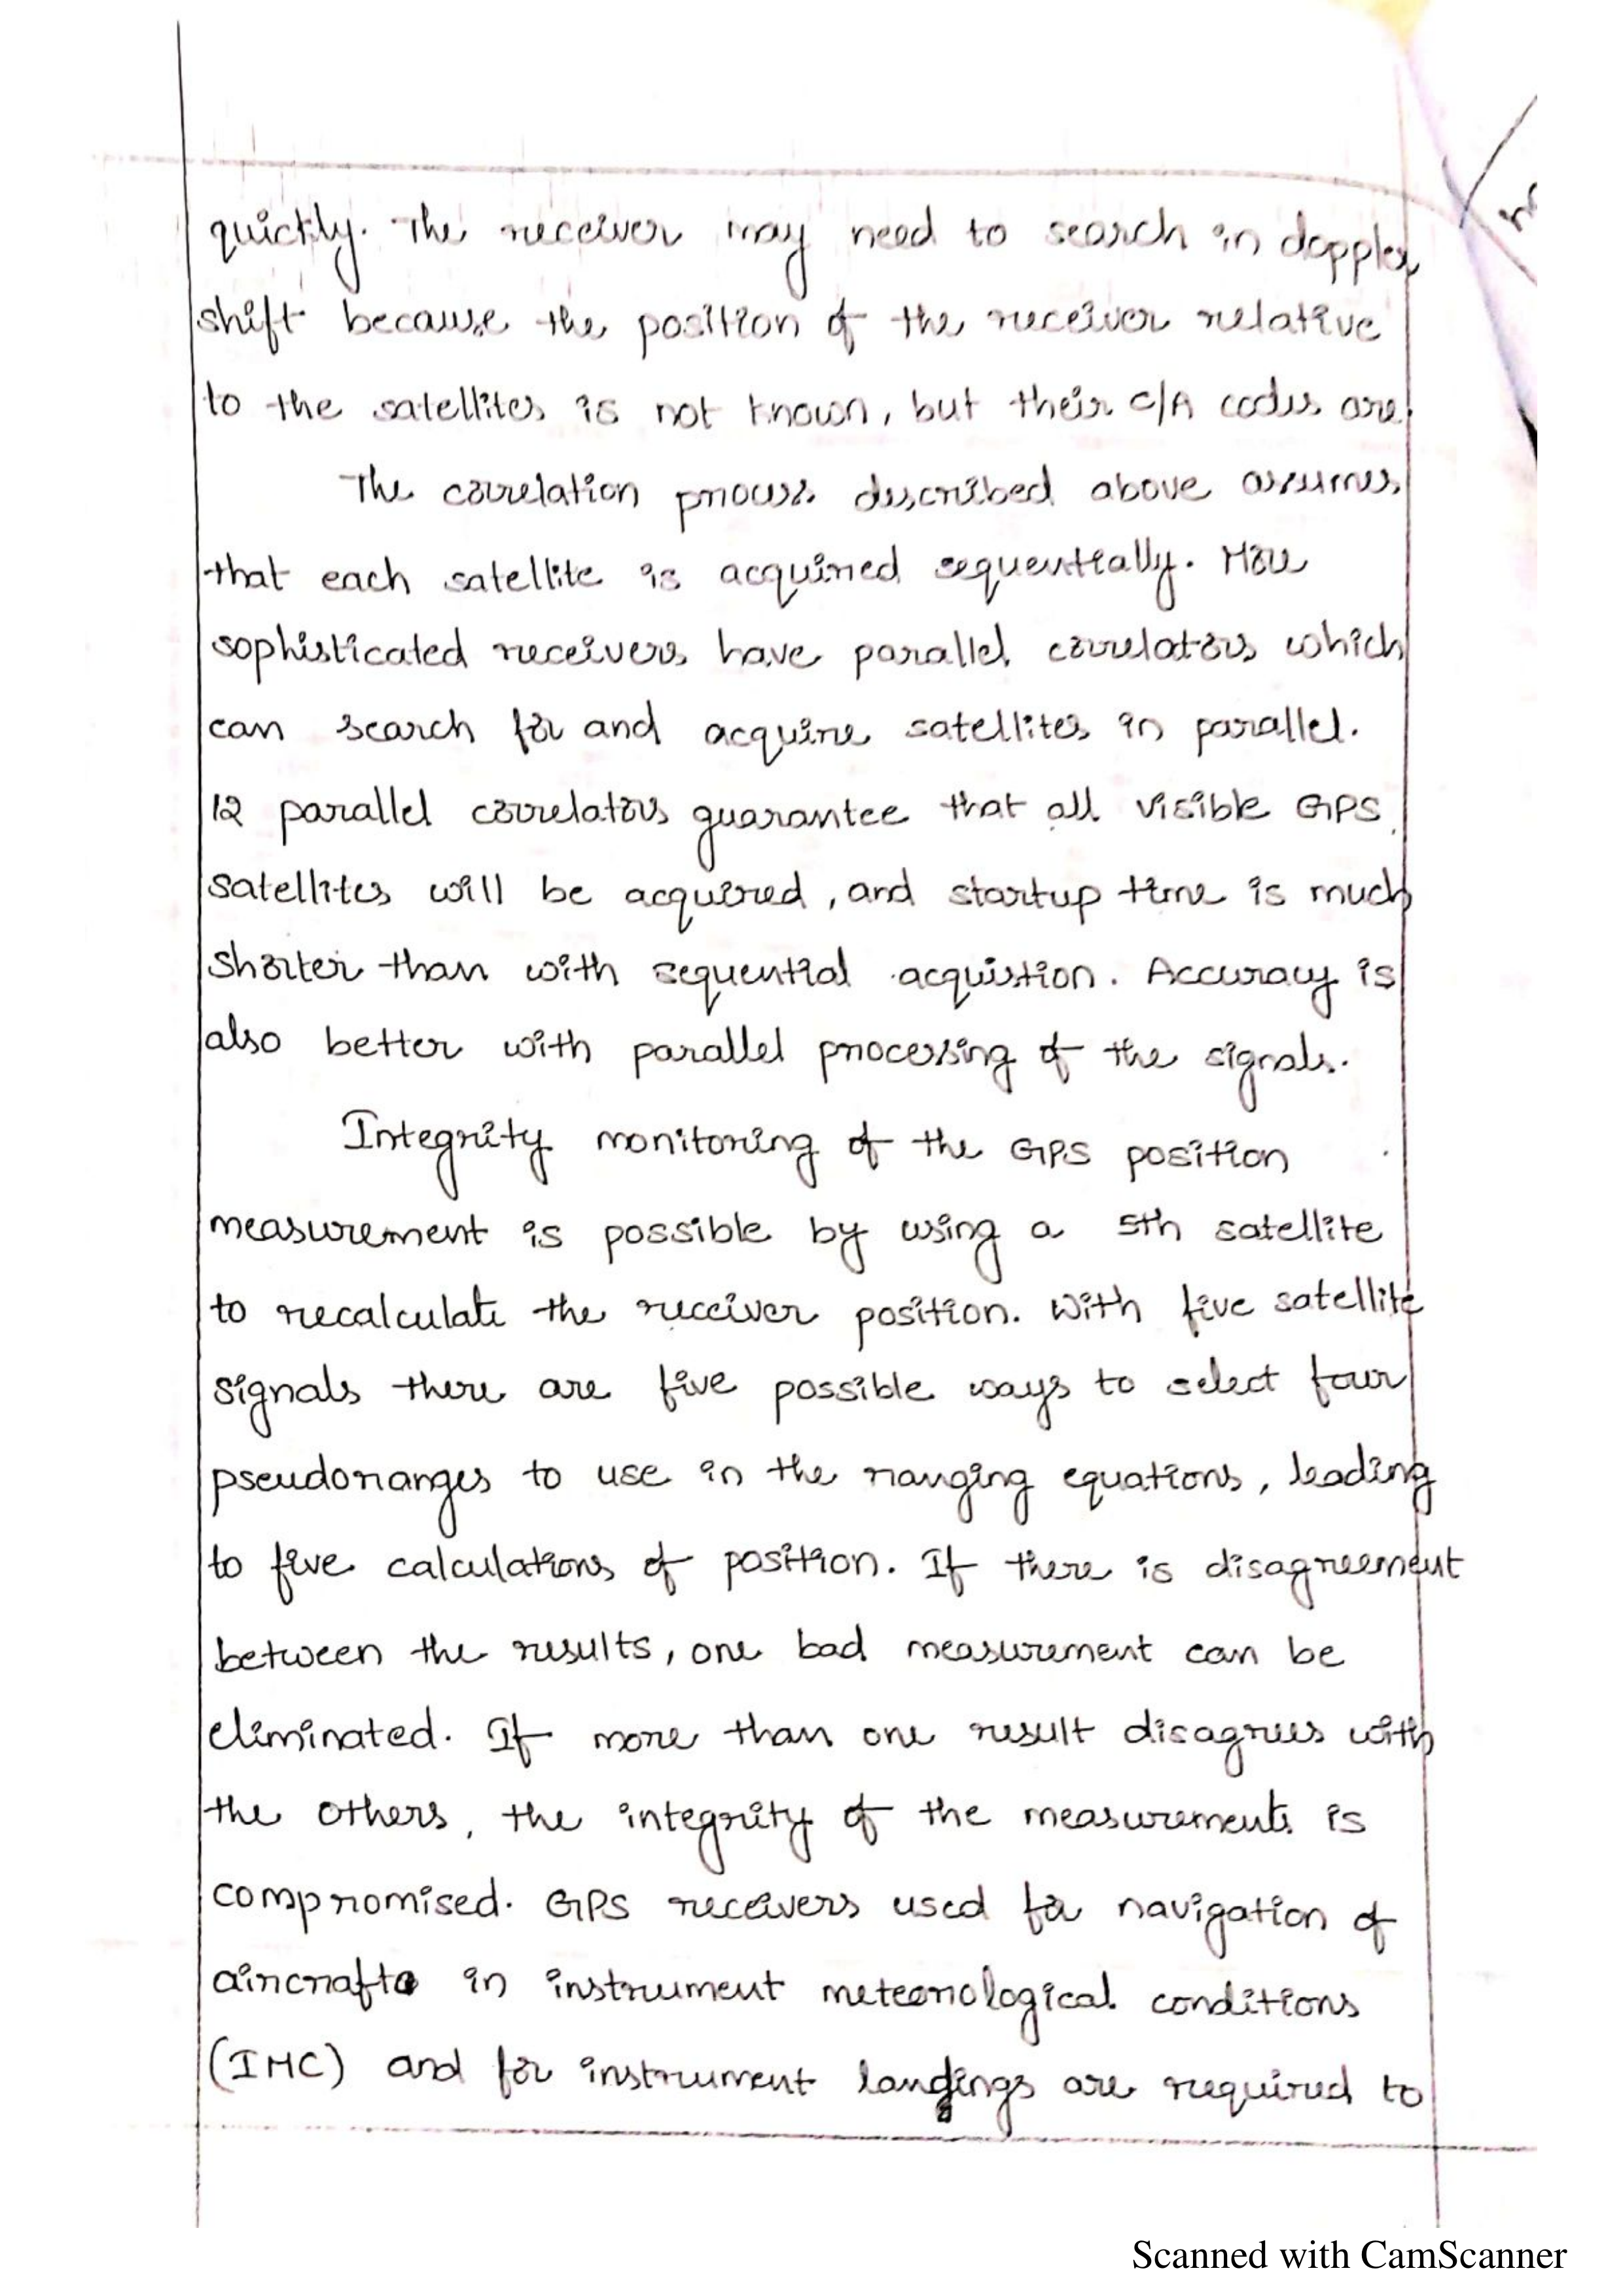 quickly. The receiver may need to search in doppler
shift because the position of the receiver relative
to the satellites is not known, but their C/A codes are.
The correlation process described above assumes
that each satellite is acquired sequentially. More
sophisticated receivers have parallel correlators which
can search for and acquire satellites in parallel.
12 parallel correlators guarantee that all visible GPS
satellites will be acquired, and startup time is much
shorter than with sequential acquistion. Accuracy is
also better with parallel processing of the signals.
Integrity monitoring of the GPS position
measurement is possible by using a 5th satellite
to recalculate the receiver position. With five satellite
signals there are five possible ways to select four
pseudoranges to use in the ranging equations, leading
to five calculations of position. If there is disagreement
between the results, one bad measurement can be
eliminated. If more than one result disagrees with
the others, the integrity of the measurements is
compromised. GPS receivers used for navigation of
aircrafts in instrument meteorological conditions
(IMC) and for instrument landings are required to
Scanned with CamScanner